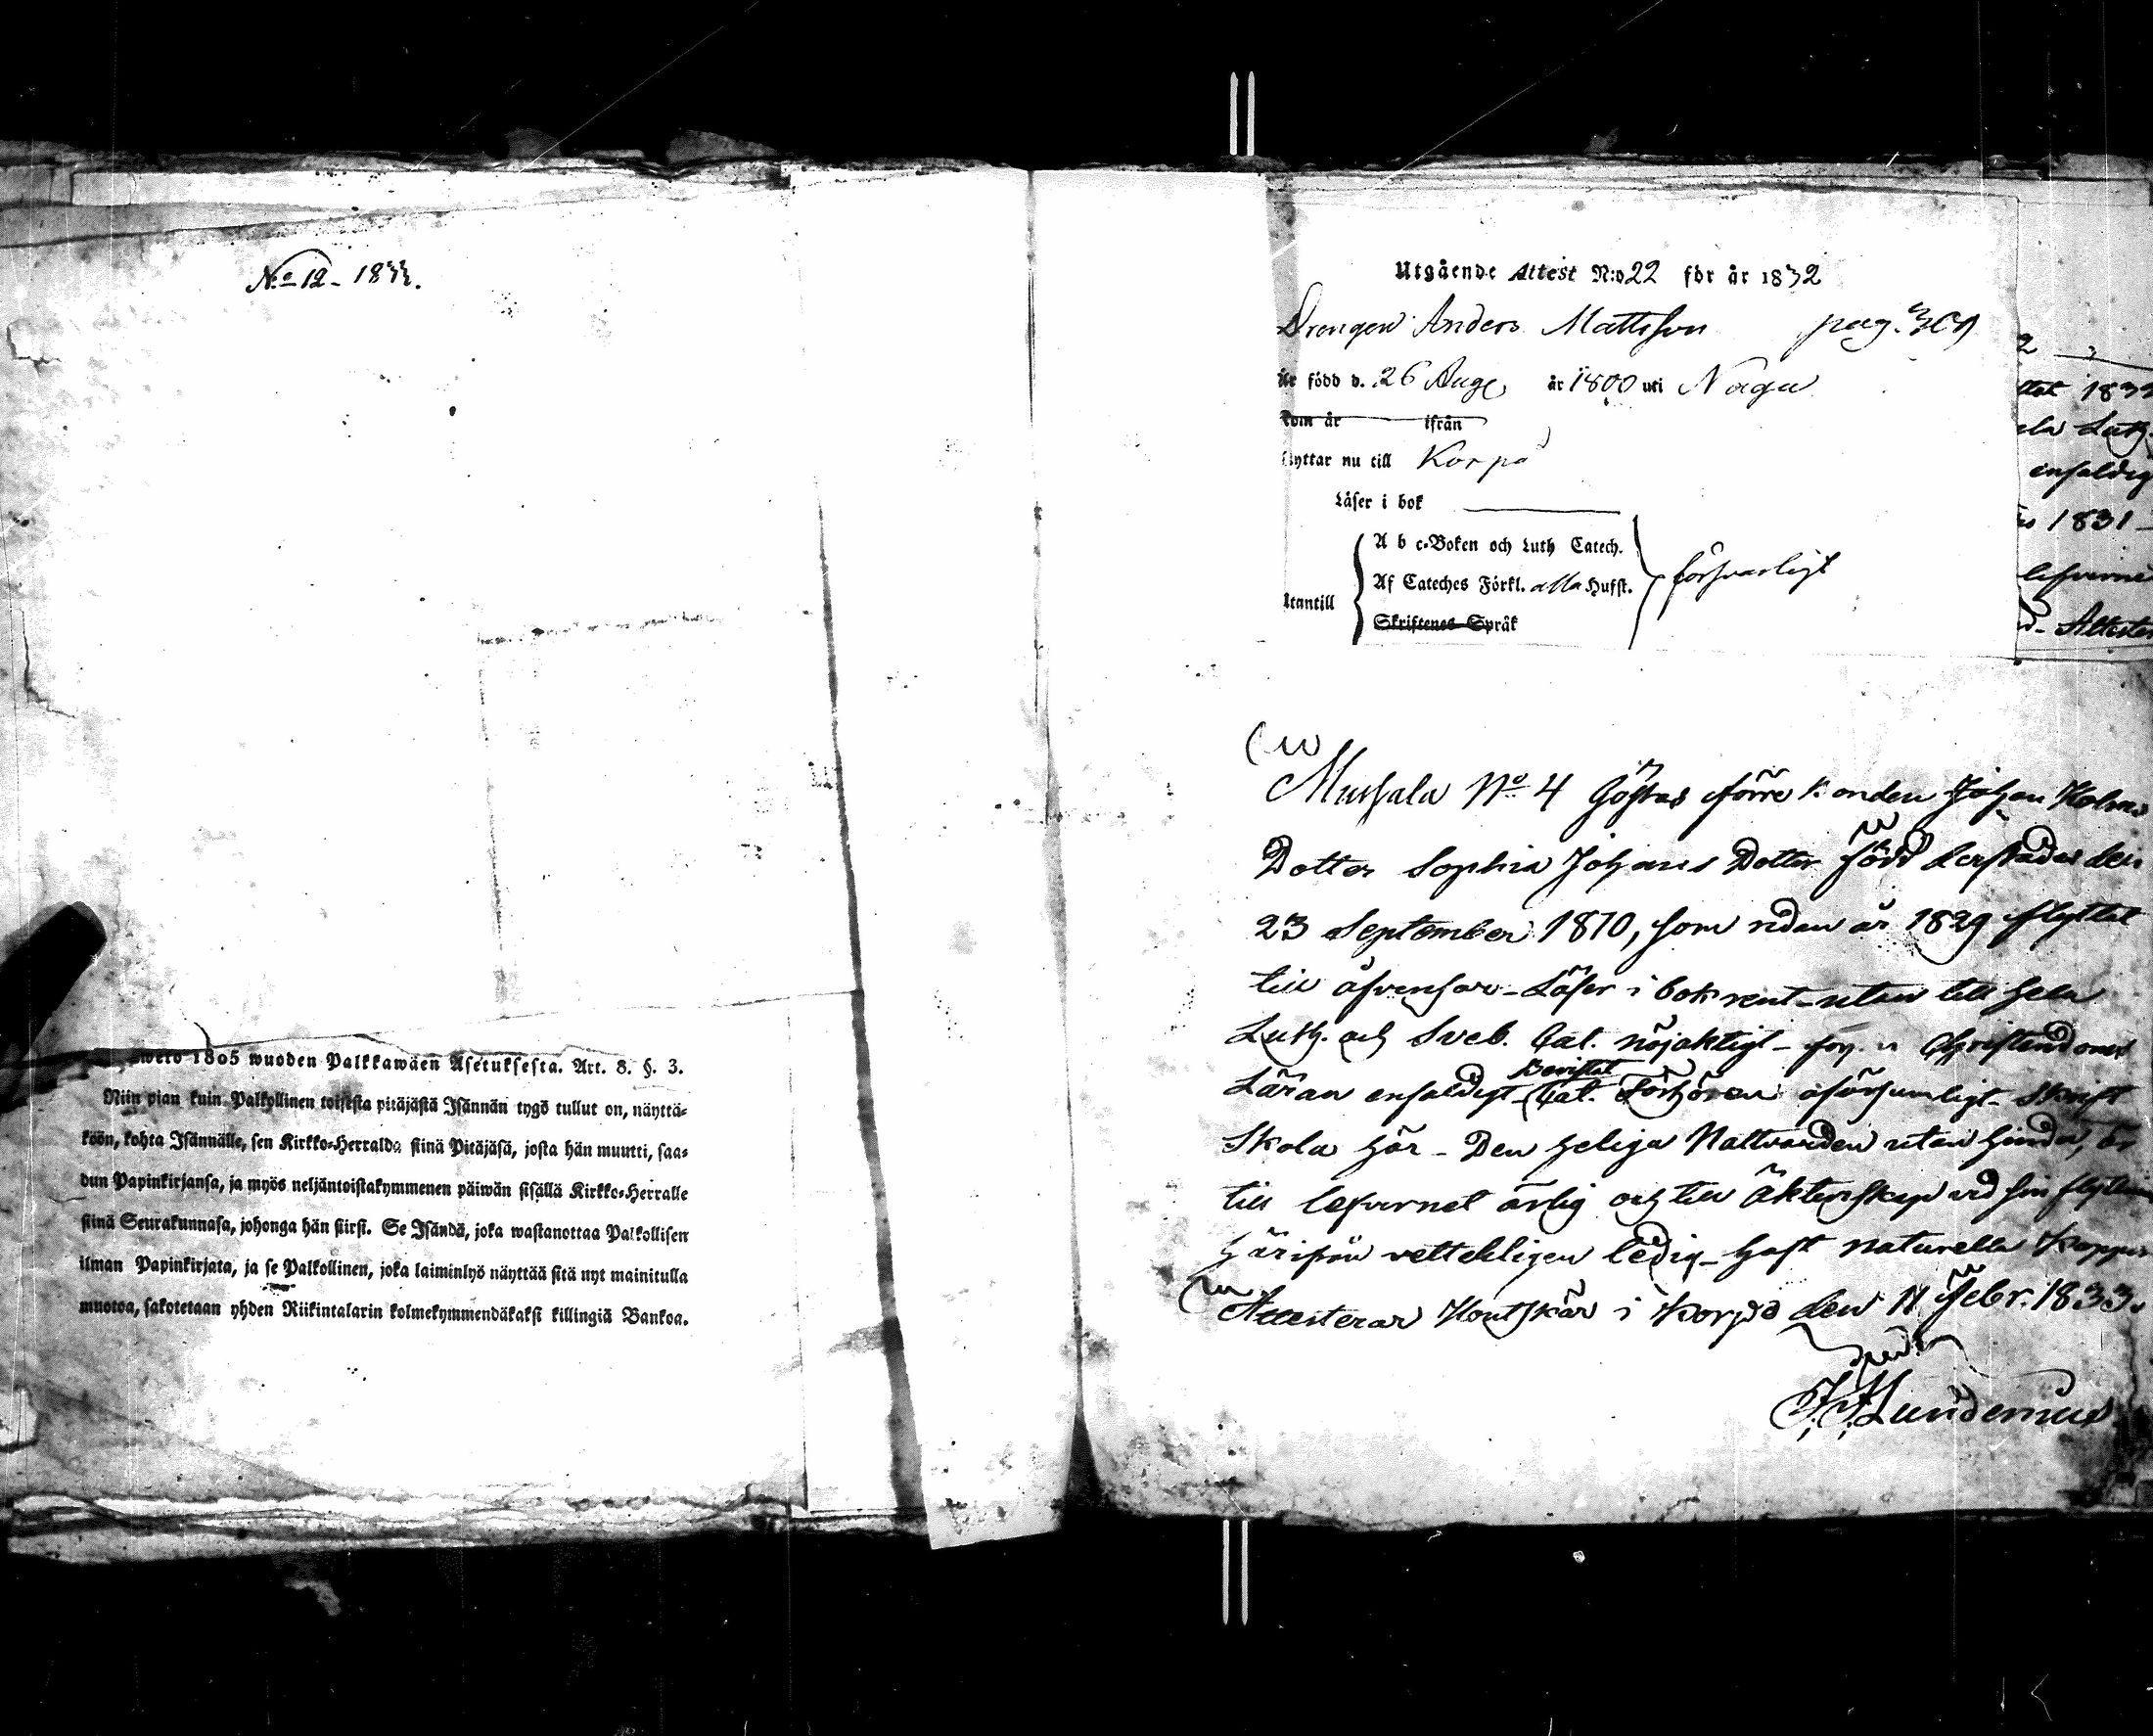 N:o 12 - 1833.
weto 1805 wuoden Palkkawäen Asetuksesta. Art. 8. §. 3.
Niin pian kuin Palkollinen toisesta pitäjästä Isännän tygö tullut on, näyttä-
köön, kohta Isännälle, sen Kirkko-Herralda siinä Pitäjäsä, josta hän muutti, saa-
dun Papinkirjansa, ja myös neljäntoistakymmenen päiwän sisällä Kirkko-Herralle
siinä Seurakunnasa, johonga hän siirsi. Se Isändä, joka wastanottaa Palkollisen
ilman Papinkirjata, ja se Palkollinen, joka laiminlyö näyttää sitä nyt mainitulla
muotoa, sakotetaan yhden Riikintalarin kolmekymmendäkaksi killingiä Bankoa.
Utgående Attest N:o 22 för år 1832
Drengen Anders Mattsson pag. 309
är född d. 26 Aug. år 1800 uti Nagu
kom år ifrån
flyttar nu till Korpo
Läser i bok
A b c-Boken och Luth Catech.
Af Cateches Förkl. alla Husst. försvarligt
Utantill
Skriftenes Språk
1832
Luth.
enfaldig
1831
Mussala N:o 4 Göstas förre bonden Johan
Dotter Sophia Johans Dotter född den
23 September 1810, som sidan år 1829 flyttat
till - Läser i bok rent - utan till hela
Luth. och Sveb. Cat. nöjaktigt - Christendoms
Bevistat
Läran enfaldigt - Cat. Förhören oförsumligt - Skrift
Skola här - Den heliga Nattvarden utan hinder, är
till lefvernet ärlig och till Äktenskap vid sin flyttn
härifrån vetterligen ledig - haft naturella Koppor
Attesterar Houtskär i Korpo den 11 Febr. 1833.
J. J. Lundenius